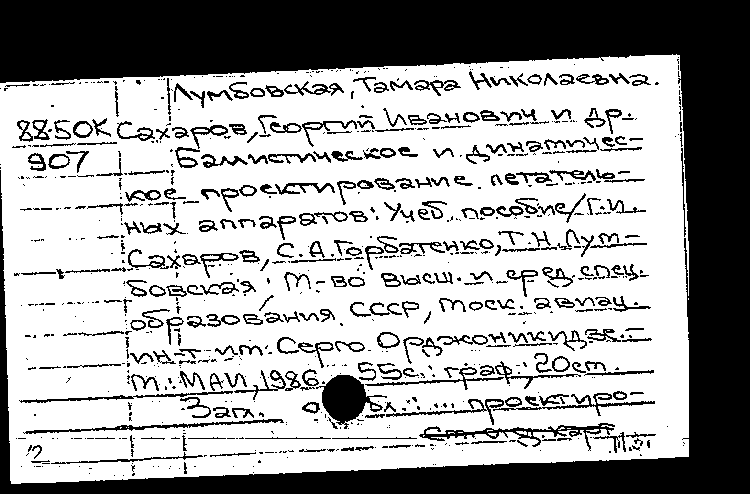 Лумбовская, Тамара Николаевна.
88-50К Сахаров, Георгий Иванович и др.
907 Баллистическое и динамичес-
кое проектирование летатель-
ных аппаратов: Учеб. пособие/Г.И.
Сахаров, С.А.Горбатенко, Т.Н.Лум-
бовская; М-во высш. и сред. спец.
образования СССР, Моск. авиац.
ин-т им. Серго Орджоникидзе.-
М.: МАИ, 1986. 55с.: граф.; 20см.
Загл. обл.: ... проектиро-
См. отд. карт.